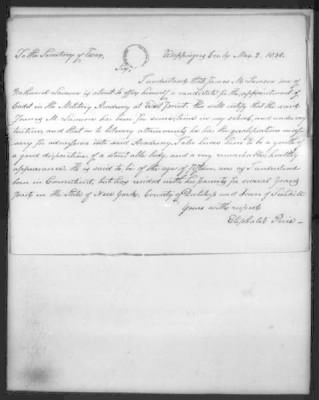 To the Secretary of War,
Wappingers Creek, Mar. 2. 1830.
Sir,
I understand that James M. Lawson son of
Lawson is about to offer himself a candidate for the appointment of
Cadet in the Military Academy at West Point. This will certify that the said
James M. Lawson has been for sometime in my school and under my
tuition and that as to literary attainments he has the qualifications neces-
sary for admission into said Academy. I also know him to be a youth of
a good disposition, of a stout able body and a very remarkable healthy
appearance. He is said to be of the age of fifteen, was as I understand
born in Connecticut, but has resided with his parents for several years
past in the State of New York, County of and town of
Yours with respect
Eliphalet Price